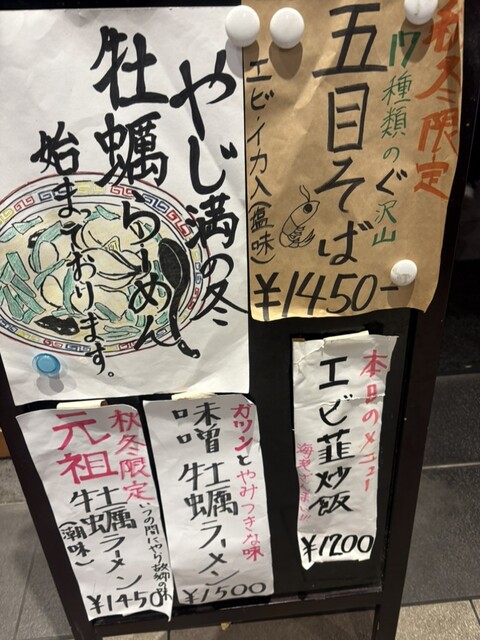 やじ満の冬
牡蠣らーめん
始まっております。
秋冬限定
17種類のぐ沢山
五目そば
エビ・イカ入(塩味)
¥1450-
秋冬限定
いつの間にやら故郷の味
元祖
牡蠣ラーメン
(潮味)
¥1450
ガツンとやみつきな味
味噌牡蠣ラーメン
¥1500
本日のメニュー
エビ韮炒飯
¥1200